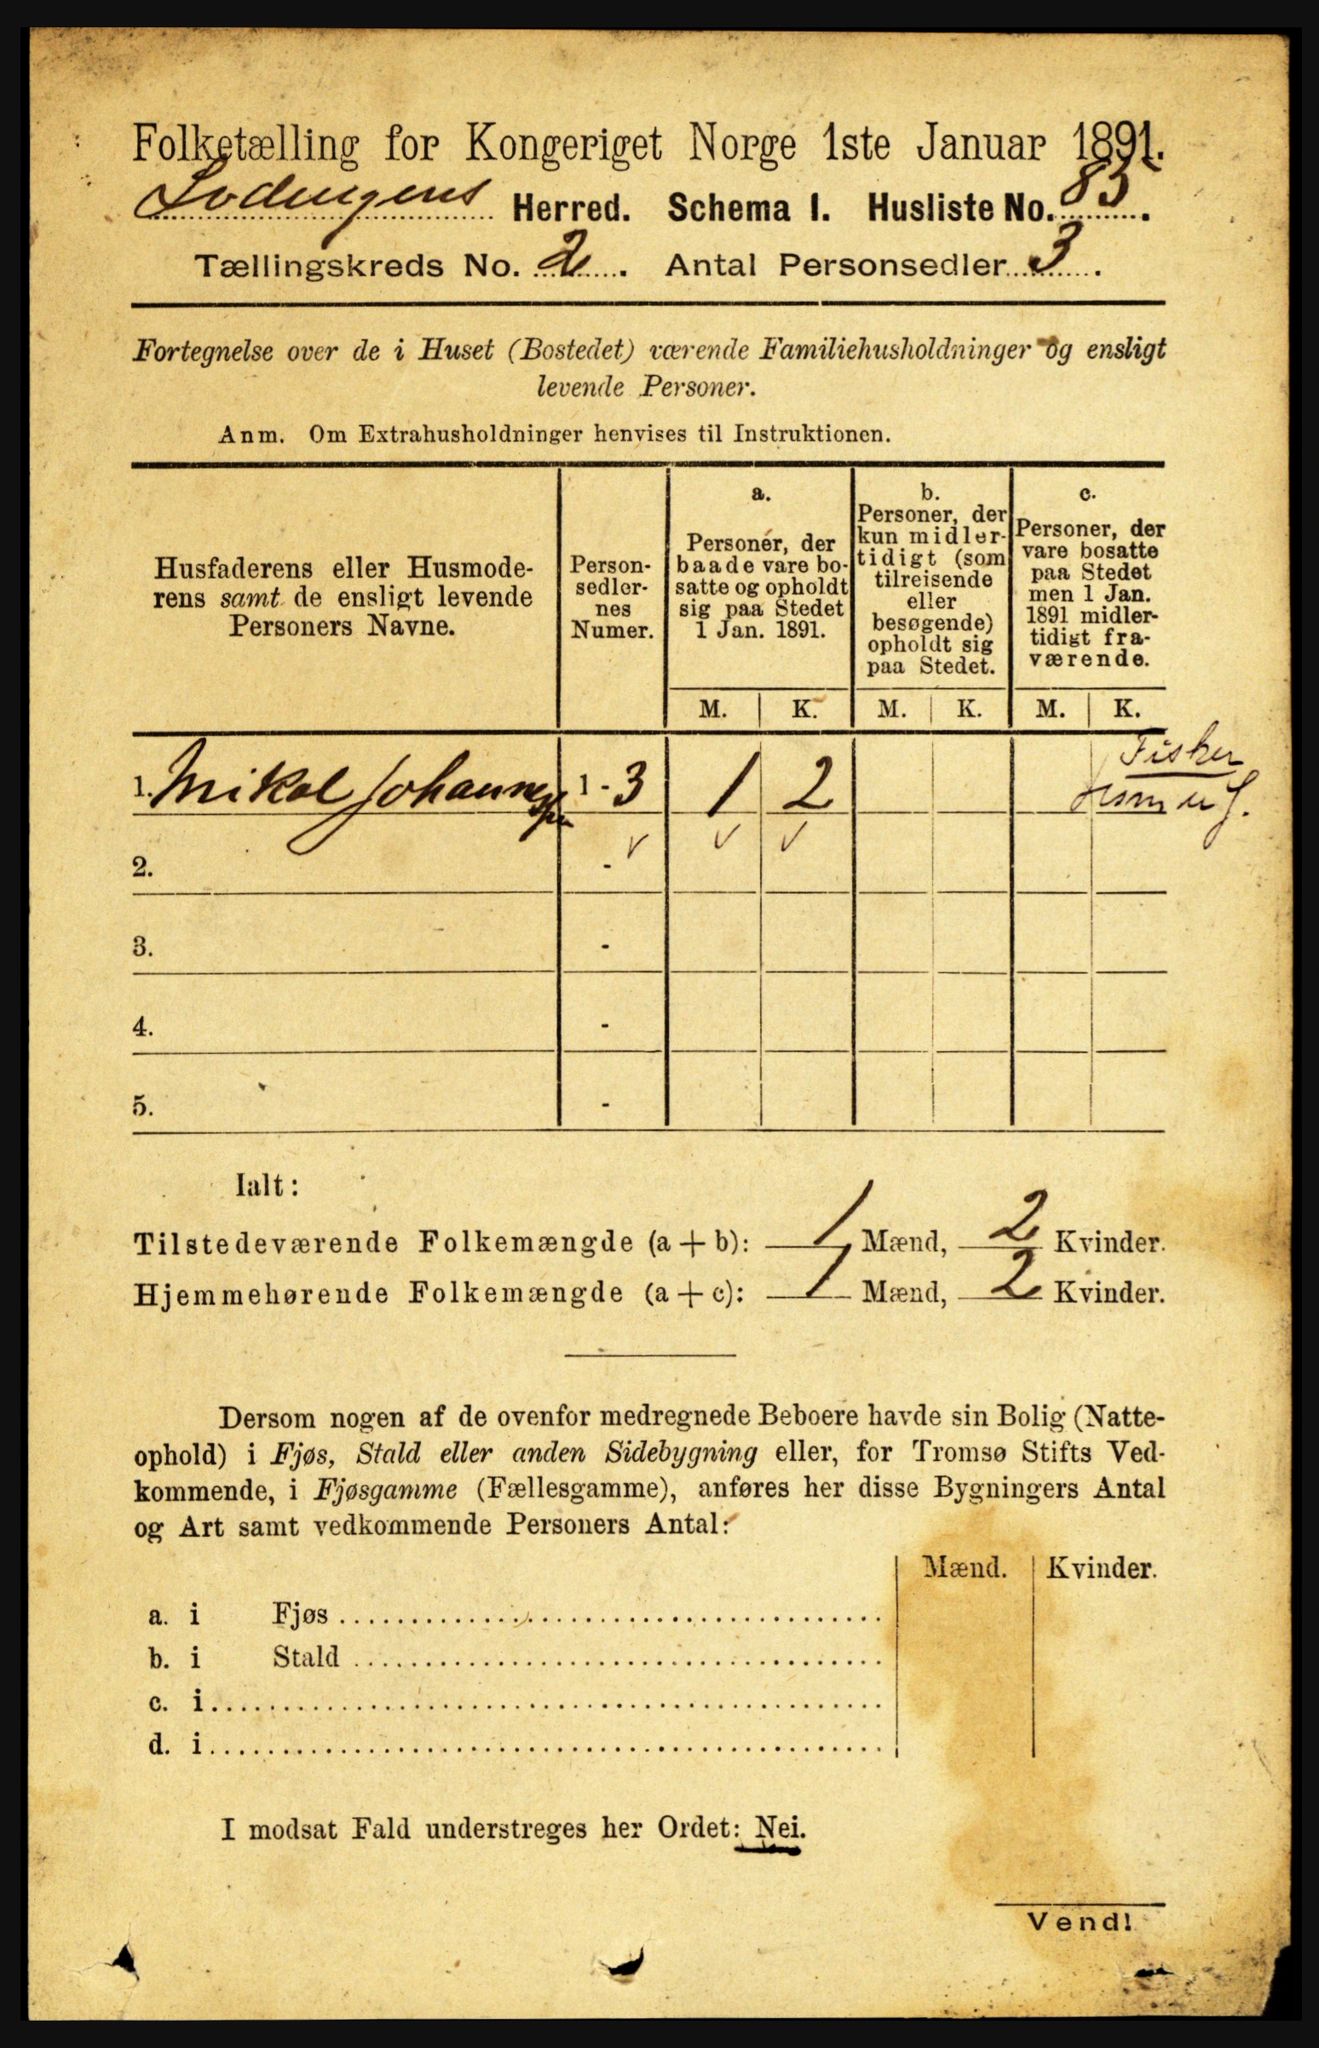 Folketælling for Kongeriget Norge 1ste Januar 1891.
Lodingens Herred. Schema I. Husliste No. 85.
Tællingskreds No. 2. Antal Personsedler 3.
Fortegnelse over de i Huset (Bostedet) værende Familiehusholdninger og ensligt
levende Personer.
Anm. Om Extrahusholdninger henvises til Instruktionen.
Husfaderens eller Husmode-
rens samt de ensligt levende
Personers Navne.
Person-
sedler-
nes
Numer.
a.
Personer, der
baade vare bo-
satte og opholdt
sig paa Stedet
1 Jan. 1891.
b.
Personer, der
kun midler-
tidigt (som
tilreisende
eller
besøgende)
opholdt sig
paa Stedet.
c.
Personer, der
vare bosatte
paa Stedet
men 1 Jan.
1891 midler-
tidigt fra-
værende.
M. K. M. K. M. K.
Fisker
1. Mikal Johannessen 1 - 3 1 2
2. -
3. -
4. -
5. -
Ialt:
Tilstedeværende Folkemængde (a + b): 1 Mænd, 2 Kvinder.
Hjemmehørende Folkemængde (a + c): 1 Mænd, 2 Kvinder.
Dersom nogen af de ovenfor medregnede Beboere havde sin Bolig (Natte-
ophold) i Fjøs, Stald eller anden Sidebygning eller, for Tromsø Stifts Ved-
kommende, i Fjøsgamme (Fællesgamme), anføres her disse Bygningers Antal
og Art samt vedkommende Personers Antal:
Mænd. Kvinder.
a. i Fjøs
b. i Stald
c. i
d. i
I modsat Fald understreges her Ordet: Nei.
Vend!